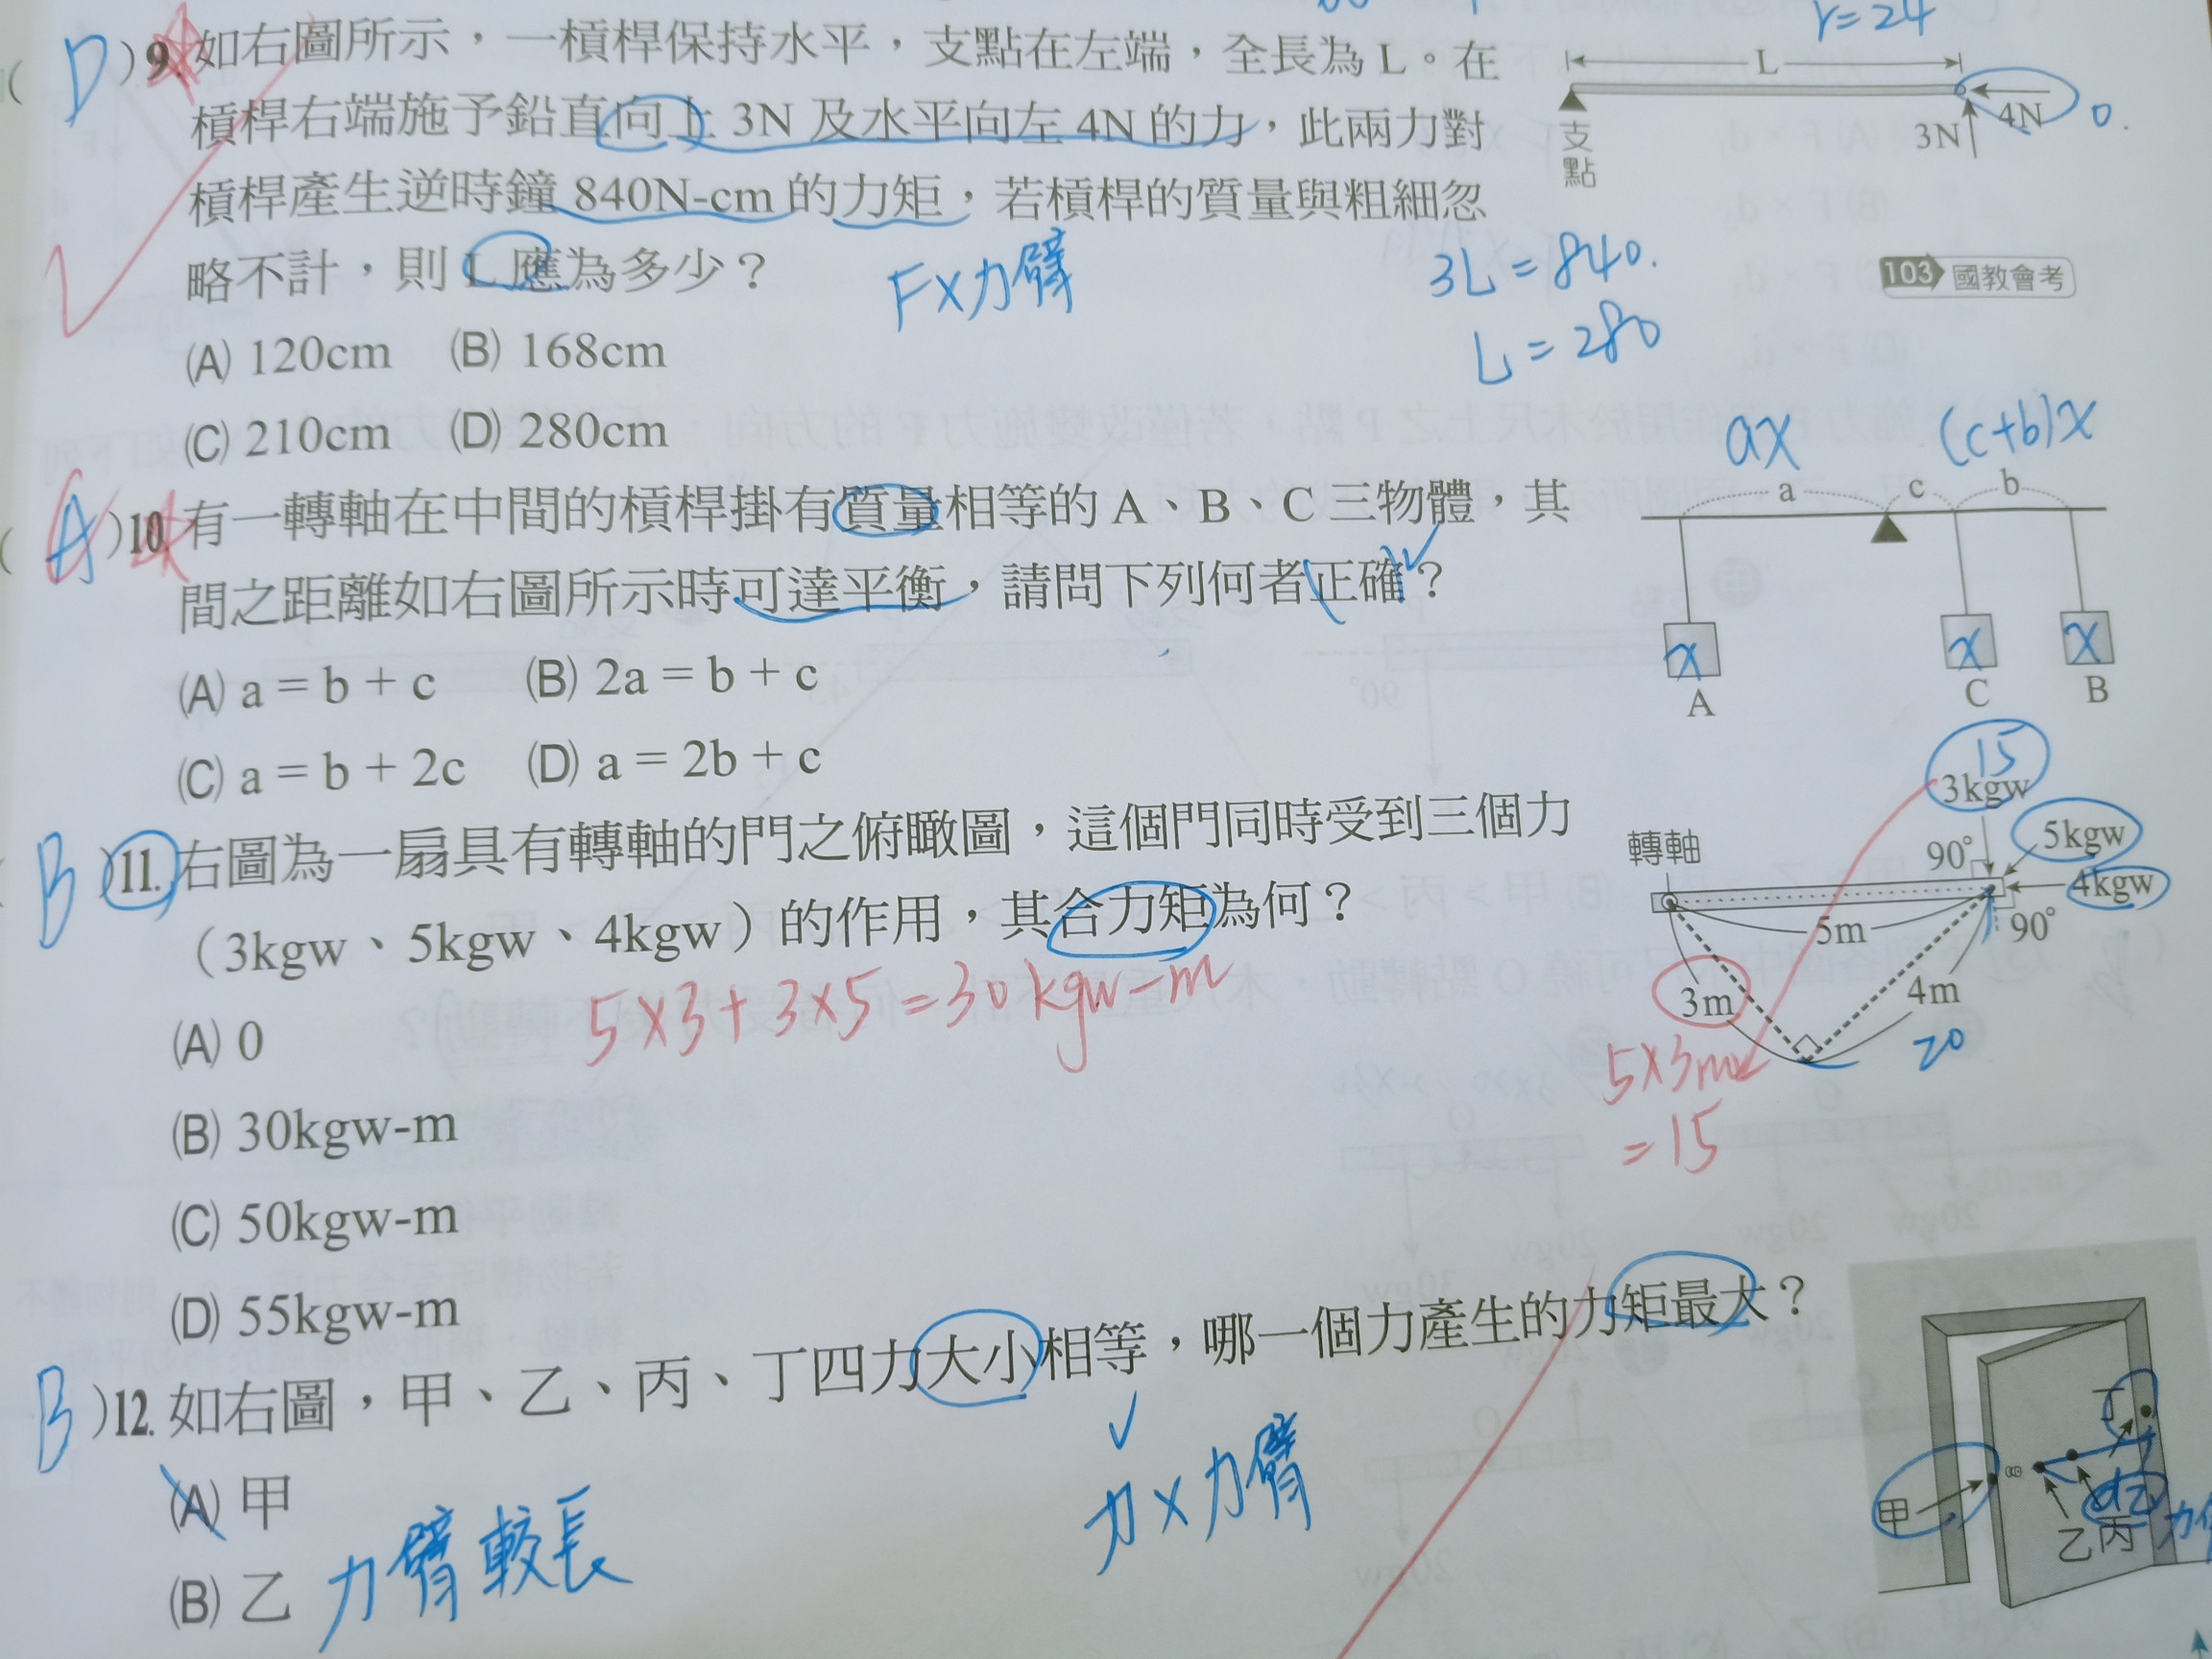 r=24
D)9.如右圖所示，一槓桿保持水平，支點在左端，全長為 L。在
槓桿右端施予鉛直向上 3N 及水平向左 4N 的力，此兩力對
槓桿產生逆時鐘 840N-cm 的力矩，若槓桿的質量與粗細忽
略不計，則 L 應為多少？
F×力臂
3L=840.
L=280
103 國教會考
(A) 120cm (B) 168cm
(C) 210cm (D) 280cm
L
支點
3N
4N
0.
A)10.有一轉軸在中間的槓桿掛有質量相等的 A、B、C 三物體，其
間之距離如右圖所示時可達平衡，請問下列何者正確？
(A) a = b + c (B) 2a = b + c
(C) a = b + 2c (D) a = 2b + c
ax (c+b)x
a c b
x x x
A C B
B)11.右圖為一扇具有轉軸的門之俯瞰圖，這個門同時受到三個力
（3kgw、5kgw、4kgw）的作用，其合力矩為何？
5×3+3×5=30kgw-m
(A) 0
(B) 30kgw-m
(C) 50kgw-m
(D) 55kgw-m
15
3kgw
轉軸
90°
5kgw
4kgw
90°
5m
3m
4m
20
5×3m
=15
B)12.如右圖，甲、乙、丙、丁四力大小相等，哪一個力產生的力矩最大？
力×力臂
(A) 甲
(B) 乙 力臂較長
丁
甲
乙 丙